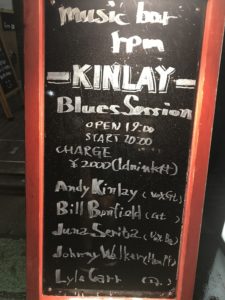 music bar
rpm
-KINLAY-
Blues Session
OPEN 19:00
START 20:20
CHARGE
¥2000 (1drink
Andy Kinlay (vo Gt.)
Bill Benfield (Gt )
Juna Serita (
Johnny Walker (
Lyla Carr (